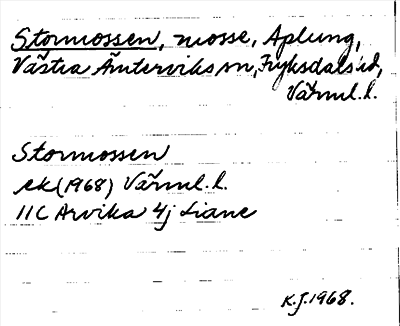 Stormossen, mosse, Aplung,
Västra Ämterviks sn, Fryksdals hd,
Värml. l.
Stormossen
ek (1968) Värml. l.
11C Arvika 4j Liane
K.J. 1968.